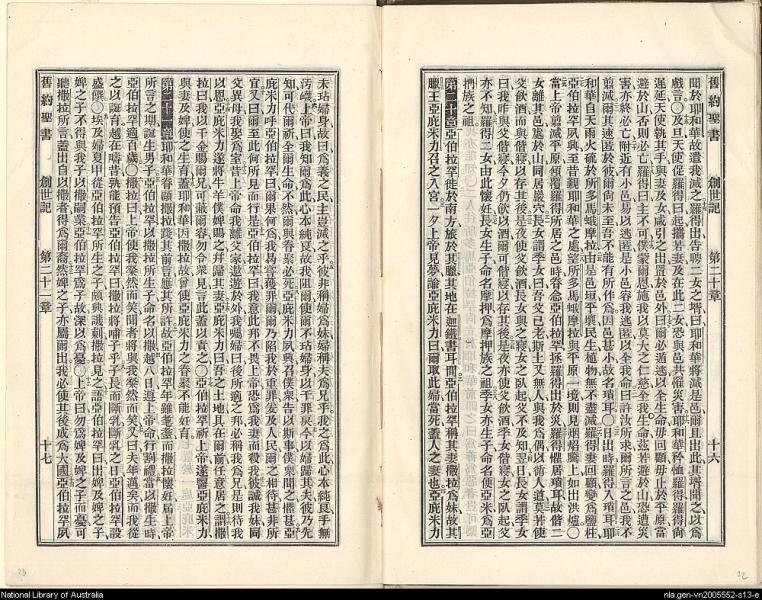 舊約聖書 創世記 第二十章 十六
聞於耶和華故遣我滅之羅得出告聘二女之壻曰耶和華將滅是邑爾且出此其壻聞之以爲
戲言〇及旦天使促羅得曰起攜若妻及在此二女恐與邑共罹災害耶和華矜恤羅得羅得尚
遲延天使執其手與妻及女咸引之出置於邑外曰爾必遁逃以全生命毋回顧毋止於平原當
避於山否則必亡羅得曰主不可僕蒙爾恩施我以莫大之仁慈全我生命茲若避於山恐遭災
害亦終必亡附近有小邑易以逃匿是小邑容我逃匿以全我命曰許汝所求爾所言之邑我不
剪滅爾其速匿於彼爾尚未至吾不能有所作爲因邑甚小故名瑣耳〇日出時羅得入瑣耳耶
和華自天雨火硫於所多馬蛾摩拉由是邑垣平壤民生植物無不盡滅羅得妻回顧變爲鹽柱
亞伯拉罕夙興至昔覲耶和華之處望所多馬蛾摩拉與平原一境則見烟焰騰上如出洪爐〇
當上帝剪滅平原傾覆羅得所居之邑時眷念亞伯拉罕拯羅得出於災羅得懼居瑣耳故偕二
女離其邑處於山同居巖穴長女謂季女曰吾父已老斯土又無人與我爲偶以循人道莫若使
父飲酒而與偕寢以存其後是夜使父飲酒長女與之寢女之臥起父不及知翌日長女謂季女
曰我昨與父偕寢今夕仍飲以酒爾可偕寢以存其後是夜亦使父飲酒季女偕寢女之臥起父
亦不知羅得二女由此懷妊長女生子命名摩押爲摩押族之祖季女亦生子命名便亞米爲亞
捫族之祖
第二十章 亞伯拉罕徙於南方旅於其臘其地在迦鐵書耳間亞伯拉罕稱其妻撒拉爲妹故其
臘王亞庇米力召之入宮一夕上帝見夢諭亞庇米力曰爾取此婦當死蓋人之妻也亞庇米力
未玷婦身故曰我爲義之民主豈滅之乎彼非稱婦爲妹婦稱夫爲兄乎我之爲此心本純良手無
汚衊上帝曰我知爾爲此心本純良故我阻爾使爾不玷婦身以干罪戾今以婦歸其夫彼乃先
知可代爾祈全爾生命不然爾與眷聚必死亞庇米力夙興召僕衆告以斯事僕衆聞之懼甚亞
庇米力呼亞伯拉罕曰爾果何爲我曷嘗獲罪爾爾乃陷我於重罪爰及人民爾之相待甚非所
宜又曰爾至此何所見而行是亞伯拉罕曰我意此邦不畏上帝恐爲我妻而殺我彼誠我妹同
父異母我娶爲室昔上帝命我離父家遨遊於外我囑婦曰後所適之邦必稱我爲兄是則待我
以恩亞庇米力遂將牛羊僕婢賜之幷歸其妻亞庇米力曰吾之土地其在爾前任意居之謂撒
拉曰我以千金賜爾兄可蔽爾容勿令衆見言此蓋以責之〇亞伯拉罕祈上帝遂醫亞庇米力
與妻及婢使之生育蓋耶和華因撒拉故曾使亞庇米力之眷聚不能妊育
第二十一章 耶和華眷顧撒拉踐其前言應其所許故亞伯拉罕年雖耄耋而撒拉懷妊屆上帝
所言之期誕生男子亞伯拉罕以撒拉所生子命名以撒越八日遵上帝命行割禮當以撒生時
亞伯拉罕適百歲〇撒拉曰上帝使我粲然而笑聞者將與我粲然而笑又曰夫年邁矣而我從
之以誕育越在疇昔孰能預告亞伯拉罕曰撒拉將哺子乎子長而斷乳斷乳之日亞伯拉罕設
盛饌〇埃及婦夏甲從亞伯拉罕所生之子頗輿譏刺撒拉見之語亞伯拉罕曰出婢及婢之子
婢之子不得與我子以撒嗣業亞伯拉罕爲子故深以爲憂上帝曰勿爲婢及婢之子而憂可
聽撒拉所言蓋出自以撒者得爲爾裔然婢之子亦屬爾出我必使其後成爲大國亞伯拉罕夙
舊約聖書 創世記 第二十一章 十七
National Library of Australia
nla.gen-vn2005552-s13-e